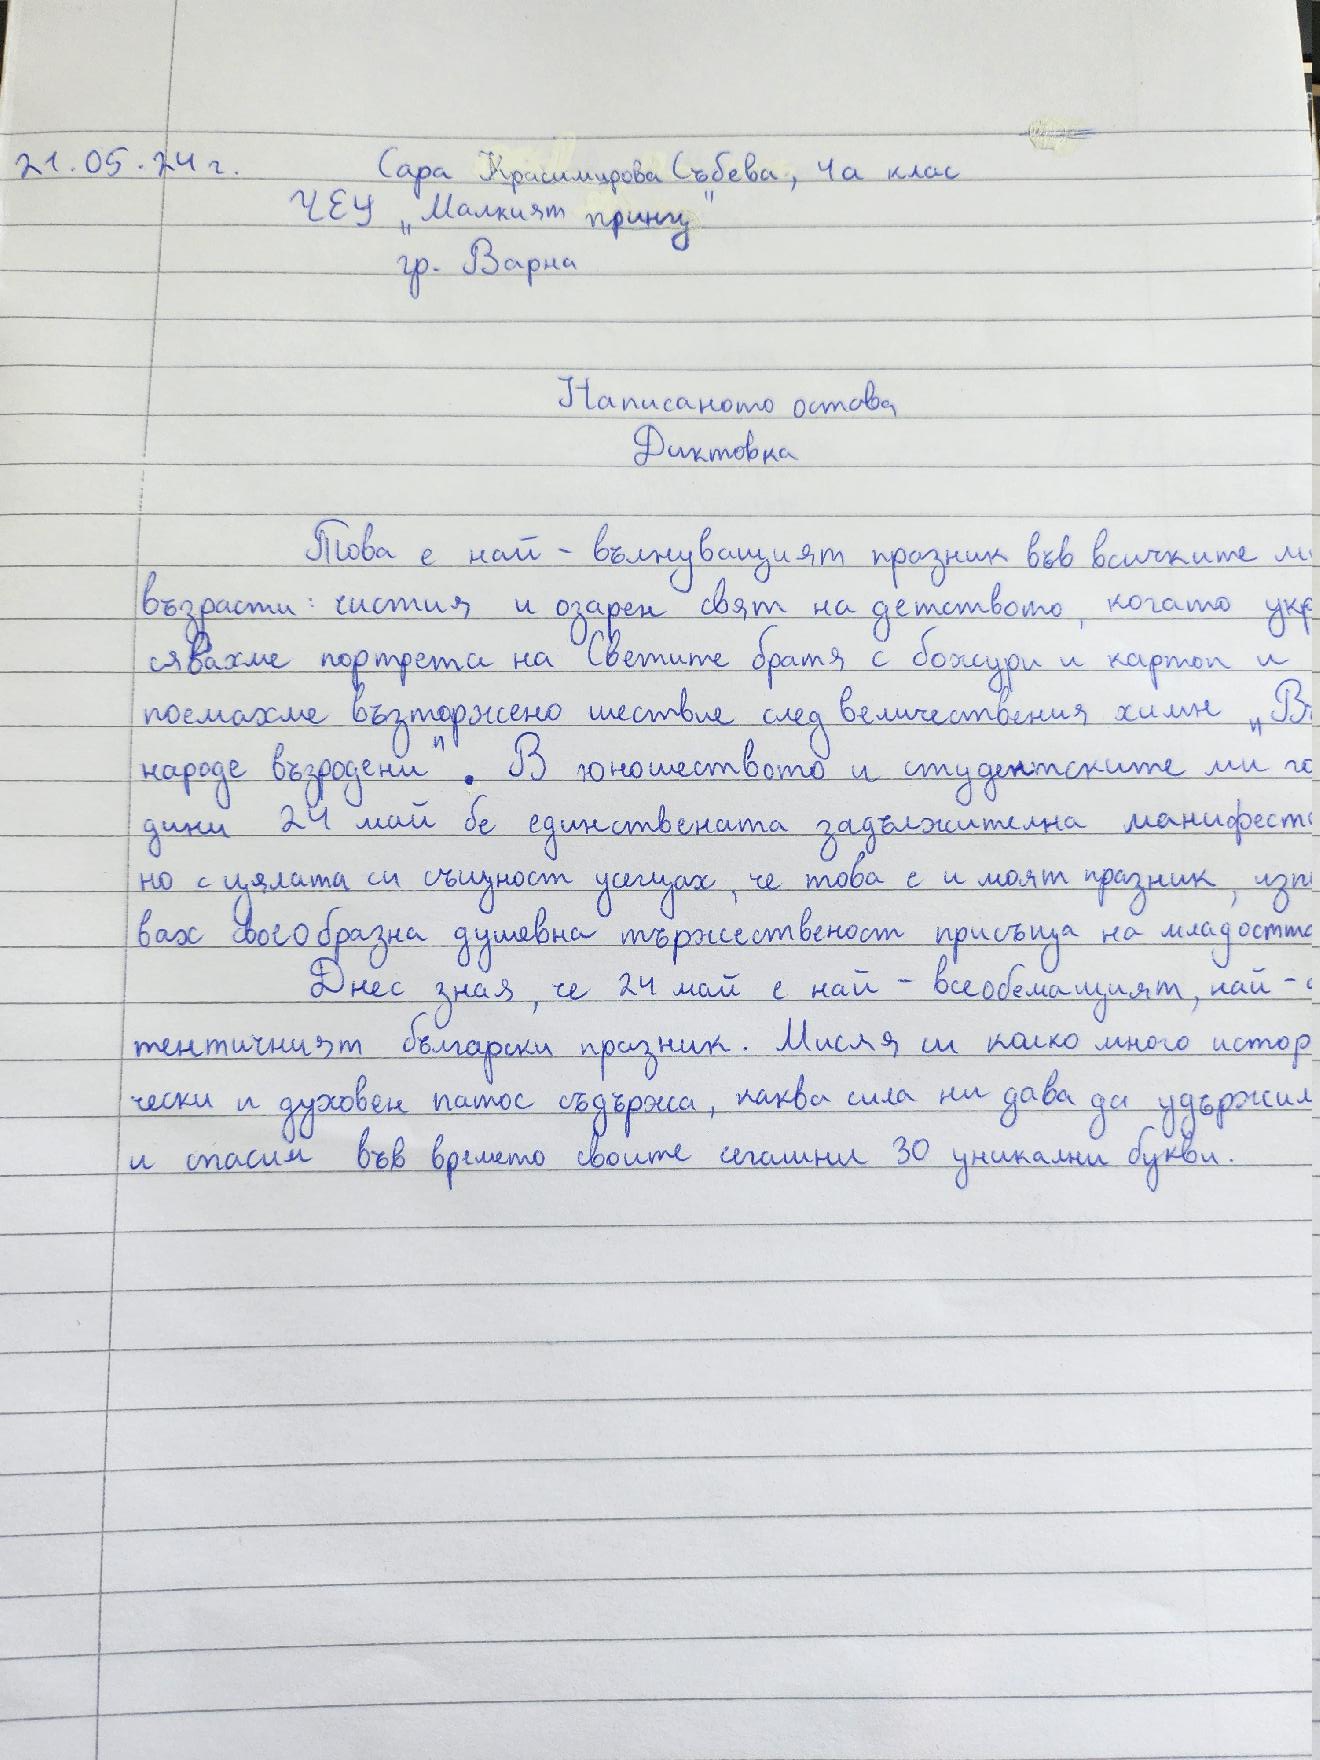 21.05.24 г. Сара Красимирова Събева, 4а клас
ЧЕУ „Малкият принц"
гр. Варна
Написаното остава
Диктовка
Това е най - вълнуващият празник във всичките ми
възрасти: чистия и озарен свят на детството, когато укр
сявахме портрета на Светите братя с божури и картон и
поемахме възторжено шествие след величествения химн „В
народе възродени". В юношеството и студентските ми го
дини 24 май бе единствената задължителна манифеста
но с цялата си същност усещах, че това е и моят празник, изп
вах своеобразна душевна тържественост присъща на младостта
Днес зная, че 24 май е най - всеобемащият, най -
тентичният български празник. Мисля си колко много истор
чески и духовен патос съдържа, каква сила ни дава да удържим
и спасим във времето своите сегашни 30 уникални букви.